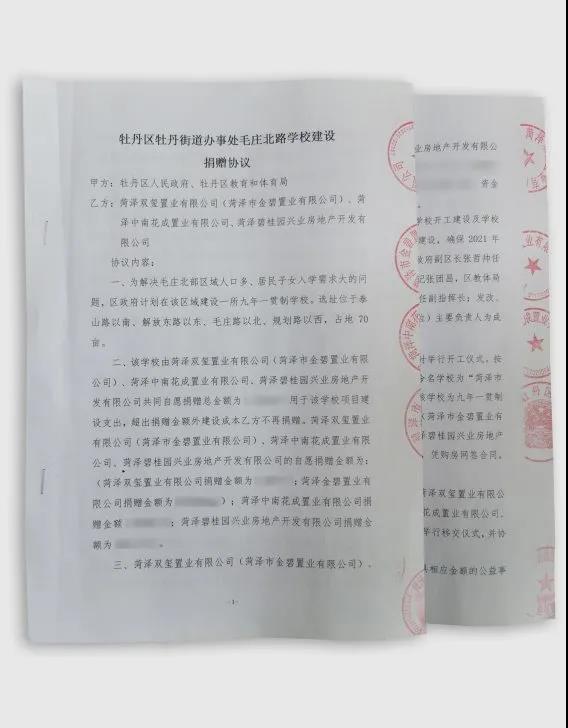 牡丹区牡丹街道办事处毛庄北路学校建设
捐赠协议
甲方：牡丹区人民政府、牡丹区教育和体育局
乙方：菏泽双玺置业有限公司（菏泽市金碧置业有限公司）、菏
泽中南花成置业有限公司、菏泽碧桂园兴业房地产开发有
限公司
协议内容：
一、为解决毛庄北部区域人口多、居民子女入学需求大的问
题，区政府计划在该区域建设一所九年一贯制学校。选址位于泰
山路以南、解放东路以东、毛庄路以北、规划路以西，占地 70
亩。
二、该学校由菏泽双玺置业有限公司（菏泽市金碧置业有限
公司）、菏泽中南花成置业有限公司、菏泽碧桂园兴业房地产开
发有限公司共同自愿捐赠总金额为 用于该学校项目建
设支出，超出捐赠金额外建设成本乙方不再捐赠。菏泽双玺置业
有限公司（菏泽市金碧置业有限公司）、菏泽中南花成置业有限
公司、菏泽碧桂园兴业房地产开发有限公司的自愿捐赠金额为：
（菏泽双玺置业有限公司捐赠金额为 ；菏泽金碧置业有
限公司捐赠金额为 ）；菏泽中南花成置业有限公司捐
赠金额 ；菏泽碧桂园兴业房地产开发有限公司捐赠金
额为 。
三、菏泽双玺置业有限公司（菏泽市金碧置业有限公司）、
-1-
业房地产开发有限公
资金
学校开工建设及学校
建设，确保 2021 年
政府副区长张首帅任
记张团昌，区教体局
任副指挥长；发改、
位）主要负责人为成
并举行开工仪式，按
命名学校为“菏泽市
该学校为九年一贯制
（菏泽市金碧置业有
泽碧桂园兴业房地产
凭购房网签合同。
菏泽双玺置业有限公
花成置业有限公司、
举行移交仪式，并协
相应金额的公益事